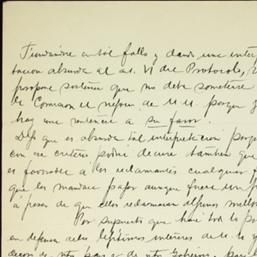 Fundándose en tal fallo y dando una inter
tación absurda al art. VI del Protocolo,
propone sostener que no debe someterse
la Comision el negocio de U.U. porque
hay una sentencia a su favor.
Dije que es absurda tal interpretacion porq
con ese criterio podria decirse tambien que
es favorable a los reclamantes cualquier
que les mandara pagar aunque fuera un p
a pesar de que ellos reclamaran algunos millo
Por supuesto que haré todo lo po
en defensa de los legítimos intereses de U.U. y
decoro de nto pais y de nto Gobierno, pero